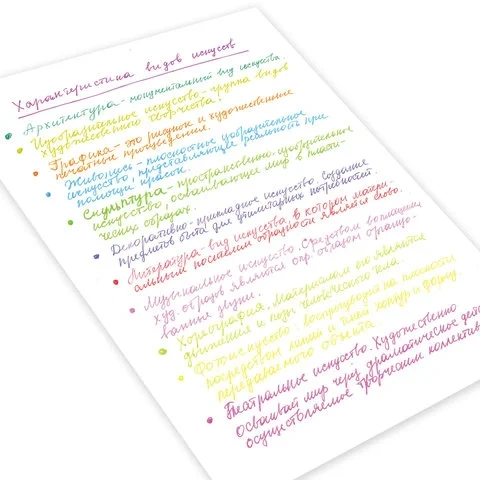 Характеристика видов искусств
Архитектура - монументальный вид искусства.
Изобразительное искусство - группа видов
художественного творчества.
Графика - это рисунок и художественные
печатные произведения.
Живопись - плоскостное изобразительное
искусство, представляющее реальность при
помощи красок.
Скульптура - пространственно-изобразительное
искусство, осваивающее мир в пласти-
ческих образах.
Декоративно-прикладное искусство. Создание
предметов быта для утилитарных потребностей.
Литература - вид искусства, в котором матери-
альным носителем образности является слово.
Музыкальное искусство. Средством воплощения
худ. образов являются опр. образом организо-
ванные звуки.
Хореография. Материалом его являются
движения и позы человеческого тела
Фотоискусство. воспроизводит на плоскости
посредством линии и тени контур и форму
передаваемого объекта.
Театральное искусство. Художественно
осваивает мир через драматическое дей
осуществляемое творческим коллектив